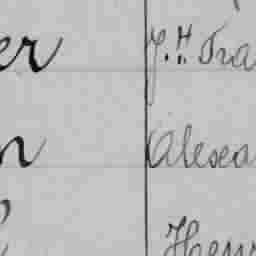 er J. H. Tra
n Alexa
Henr